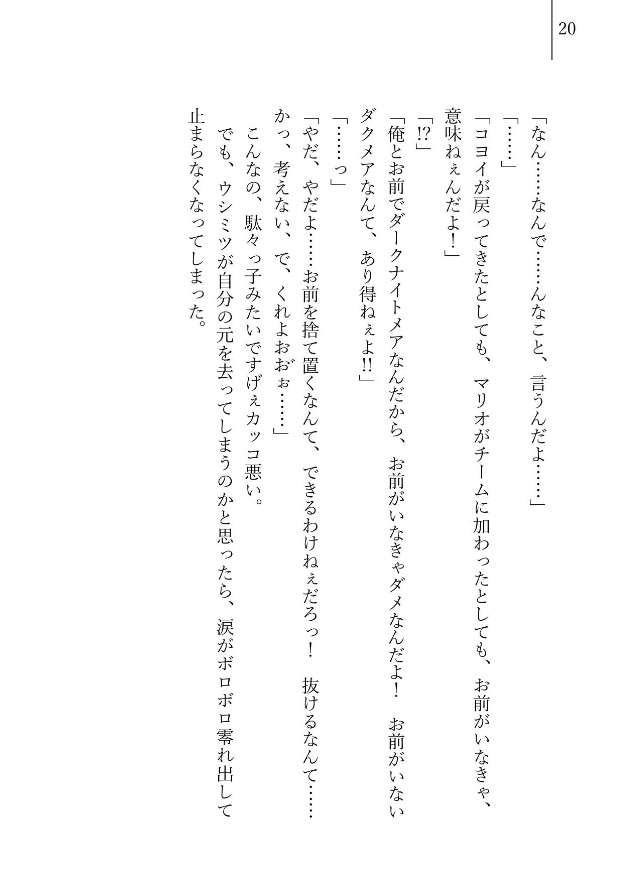 20
「なん……なんで……んなこと、言うんだよ……」
「……」
「コヨイが戻ってきたとしても、マリオがチームに加わったとしても、お前がいなきゃ、
意味ねぇんだよ！」
「!?」
「俺とお前でダークナイトメアなんだから、お前がいなきゃダメなんだよ！　お前がいない
ダクメアなんて、あり得ねぇよ!!」
「……っ」
「やだ、やだよ……お前を捨て置くなんて、できるわけねぇだろっ！　抜けるなんて……
かっ、考えない、で、くれよおお゙ぉ……」
こんなの、駄々っ子みたいですげぇカッコ悪い。
でも、ウシミツが自分の元を去ってしまうのかと思ったら、涙がボロボロ零れ出して
止まらなくなってしまった。